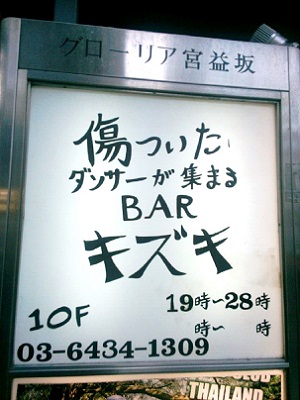 グローリア宮益坂
傷ついた
ダンサーが集まる
BAR
キズキ
10F
19時〜28時
時〜 時
03-6434-1309
THAILAND